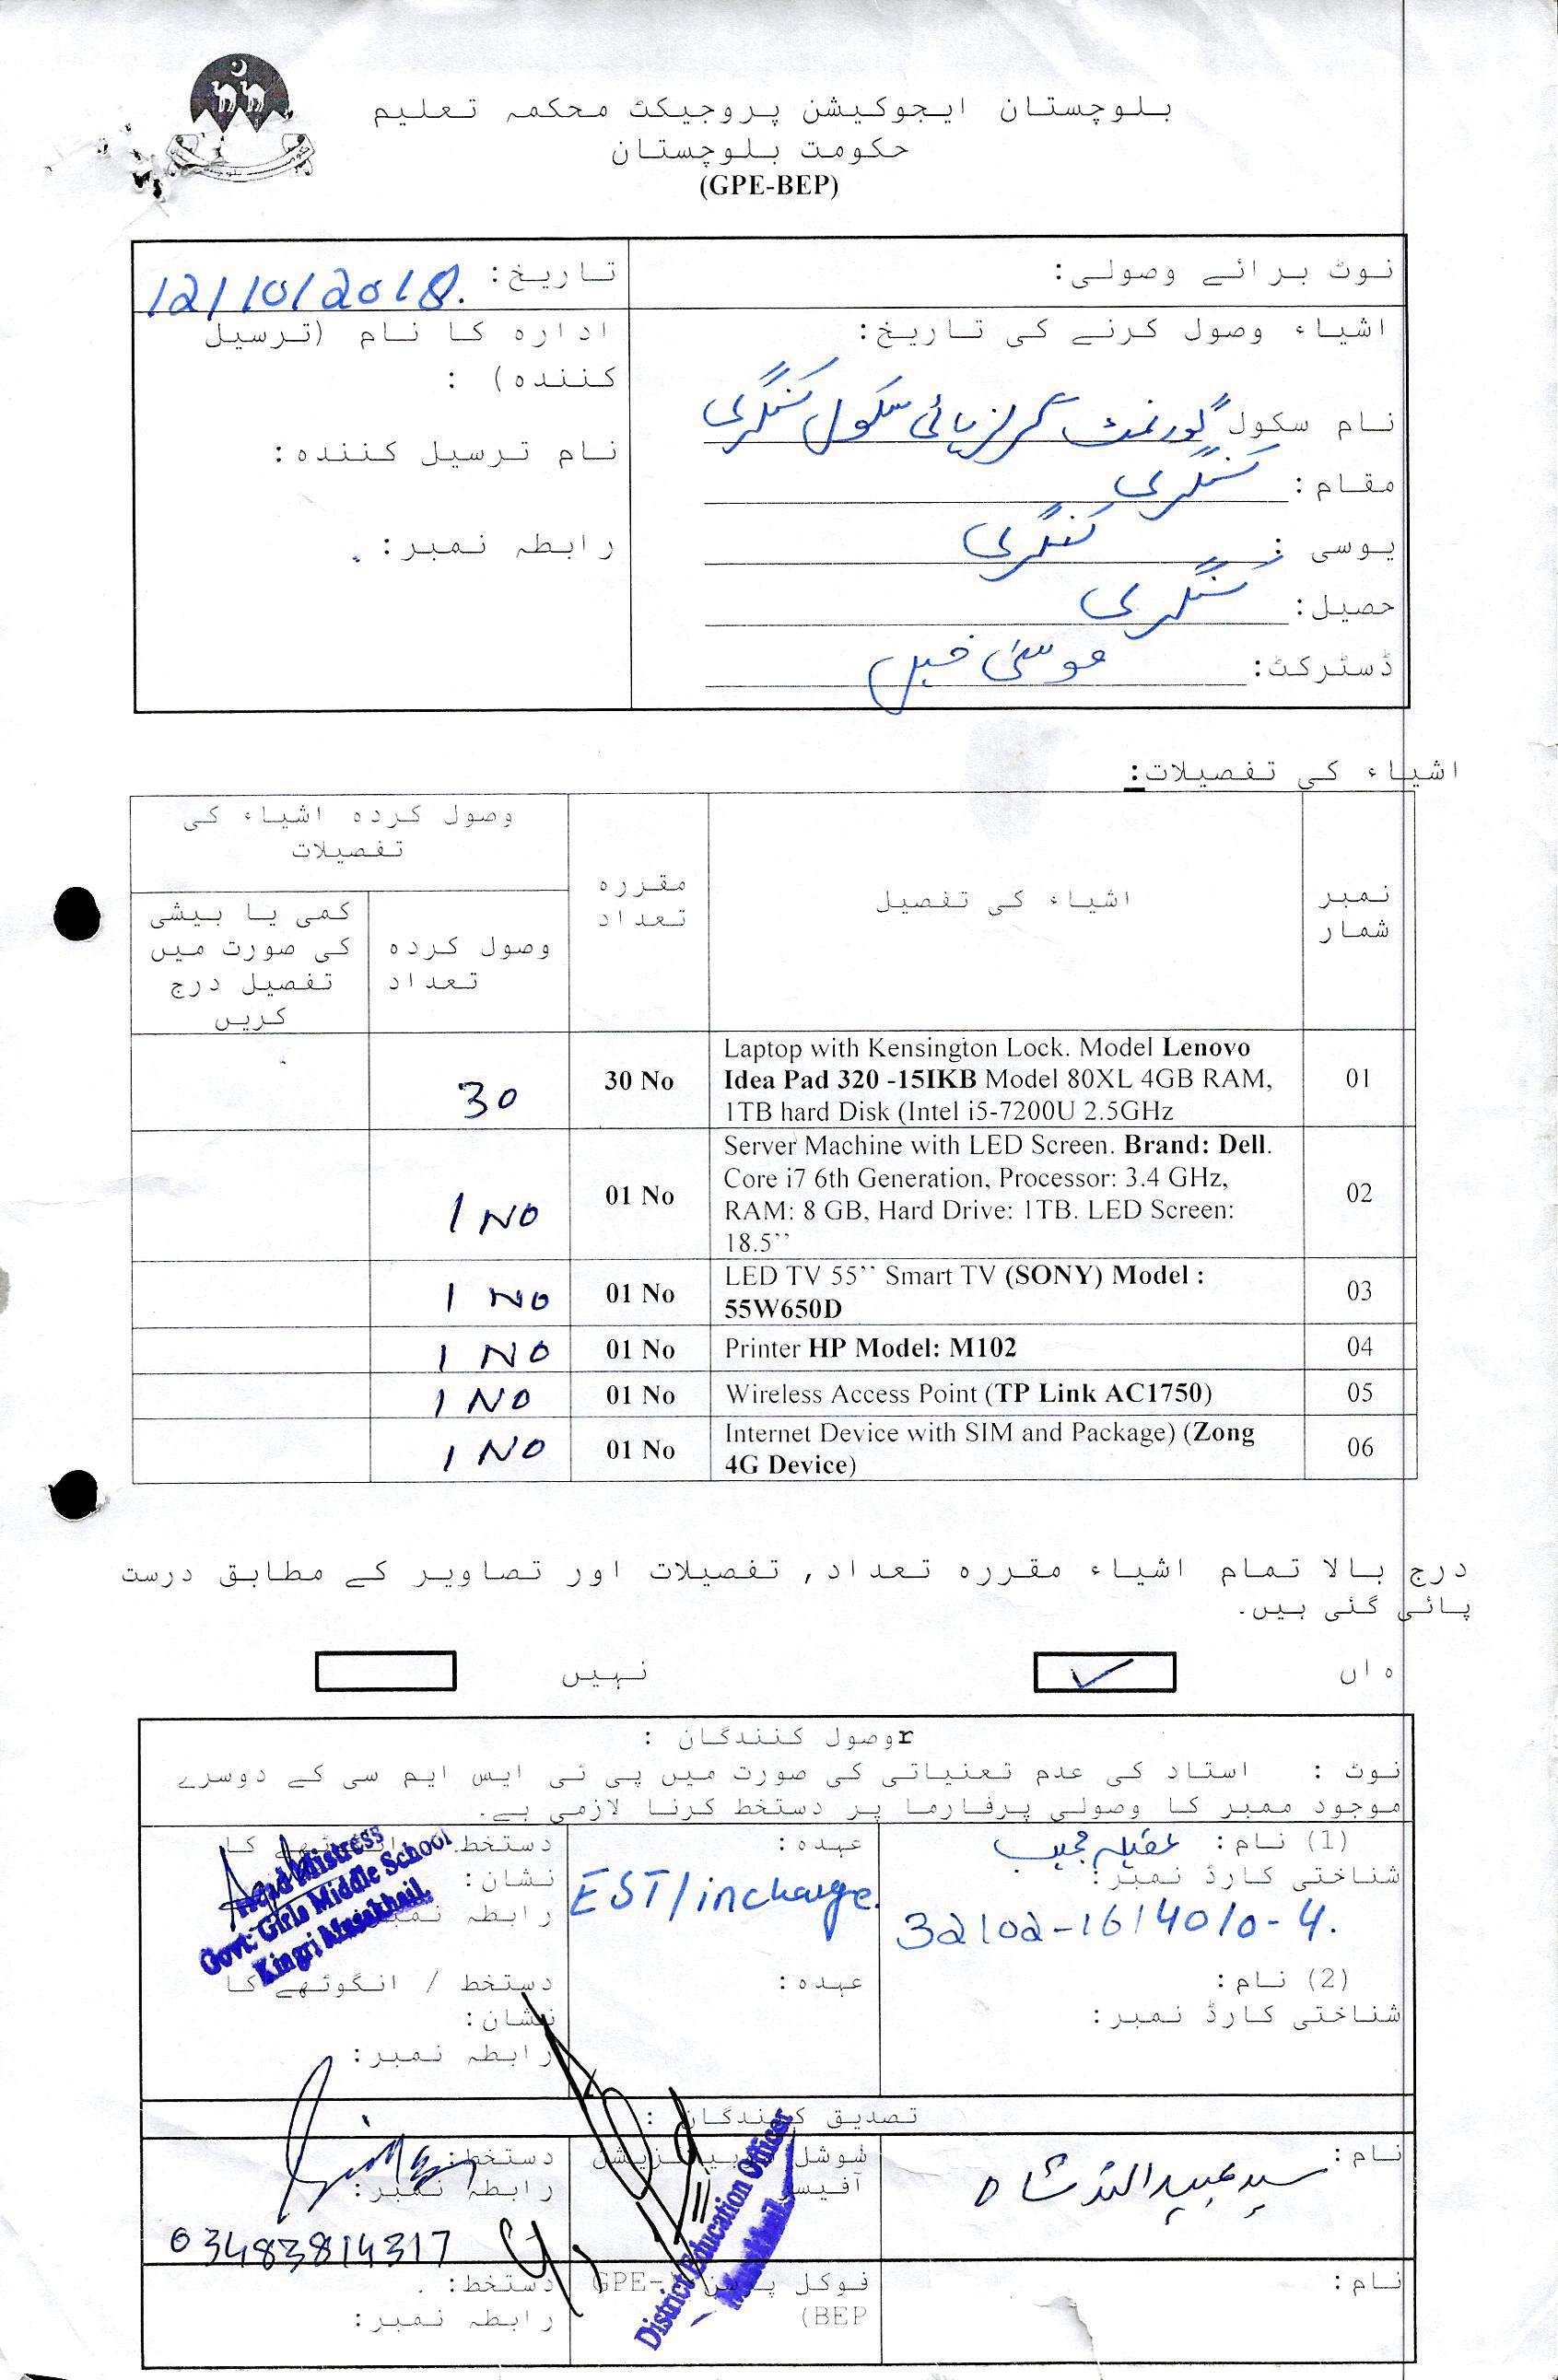 بلوچستان ایجوکیشن پروجیکٹ محکمہ تعلیم
حکومت بلوچستان
(GPE-BEP)
نوٹ برائے وصولی:
تاریخ: 12/10/2018.
اشیاء وصول کرنے کی تاریخ:
ادارہ کا نام (ترسیل کنندہ) :
نام سکول گورنمنٹ گرلز ہائی سکول کنگری
نام ترسیل کنندہ:
مقام: کنگری
یوسی : کنگری
رابطہ نمبر:
حصیل: کنگری
ڈسٹرکٹ: موسیٰ خیل
اشیاء کی تفصیلات:
نمبر شمار
اشیاء کی تفصیل
مقررہ تعداد
وصول کردہ اشیاء کی تفصیلات
وصول کردہ تعداد
کمی یا بیشی کی صورت میں تفصیل درج کریں
01
Laptop with Kensington Lock. Model Lenovo
Idea Pad 320 -15IKB Model 80XL 4GB RAM,
1TB hard Disk (Intel i5-7200U 2.5GHz
30 No
30
02
Server Machine with LED Screen. Brand: Dell.
Core i7 6th Generation, Processor: 3.4 GHz,
RAM: 8 GB, Hard Drive: 1TB. LED Screen:
18.5’’
01 No
1 NO
03
LED TV 55’’ Smart TV (SONY) Model :
55W650D
01 No
1 No
04
Printer HP Model: M102
01 No
1 NO
05
Wireless Access Point (TP Link AC1750)
01 No
1 NO
06
Internet Device with SIM and Package) (Zong
4G Device)
01 No
1 NO
درج بالا تمام اشیاء مقررہ تعداد, تفصیلات اور تصاویر کے مطابق درست
پائی گئی ہیں۔
ہاں ✓
نہیں
rوصول کنندگان :
نوٹ : استاد کی عدم تعنیاتی کی صورت میں پی ٹی ایس ایم سی کے دوسرے
موجود ممبر کا وصولی پرفارما پر دستخط کرنا لازمی ہے۔
(1) نام: عقیلہ مجیب
شناختی کارڈ نمبر:
32102-1614010-4.
عہدہ:
EST/incharge.
دستخط
نشان:
رابطہ
Head Mistress
Govt: Girls Middle School
Kingri Musakhail
(2) نام:
شناختی کارڈ نمبر:
عہدہ:
دستخط / انگوٹھے کا
نشان:
رابطہ نمبر:
تصدیق کنندگان :
نام: سید عبید اللہ شاہ
سوشل
آفیسر
دستخط:
رابطہ نمبر:
03483814317
District Education Officer
Musakhail
نام:
فوکل پرسن GPE-
(BEP
دستخط:
رابطہ نمبر: